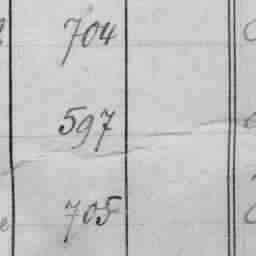 704
597
705